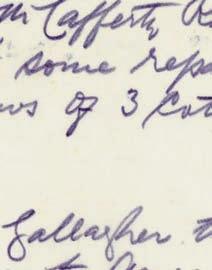 McCafferty R
some repa
ws of 3 Cot
Gallagher t